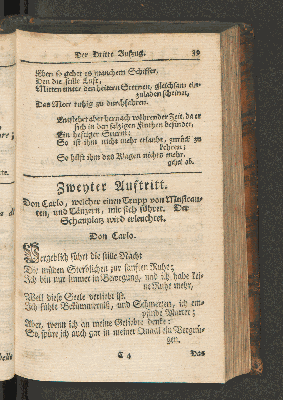 Der Dritte Aufzug. 39
Aber so gehet es manchem Schiffer,
Den die stille Lufft,
Mitten unter den heitern Sternen, gleichsam ein-
zuladen scheinet,
Das Meer ruhig zu durchfahren.
Entstehet aber hernach während der Zeit, da er
sich in den saltzigen Fluthen befindet,
Ein hefftiger Sturm;
So ist ihm nicht mehr erlaubt, zurück zu
kehren;
So hilfft ihm das Wagen nichts mehr.
gehet ab.
Zweyter Auftritt.
Don Carlo, welcher einen Trupp von Musican-
ten, und Täntzern, mit sich führet. Der
Schauplatz wird erleuchtet.
Don Carlo.
Vergeblich führt die stille Nacht
Die müden Sterblichen zur sanfften Ruhe;
Ich bin nur immer in Bewegung, und ich habe kei-
ne Ruhe mehr,
Weil diese Seele verliebt ist.
Ich fühle Bekümmerniß, und Schmertzen, ich em-
pfinde Marter;
Aber, wenn ich an meine Geliebte dencke;
So, spüre ich auch gar in meiner Quaal ein Vergnü-
gen.
C 4 Das